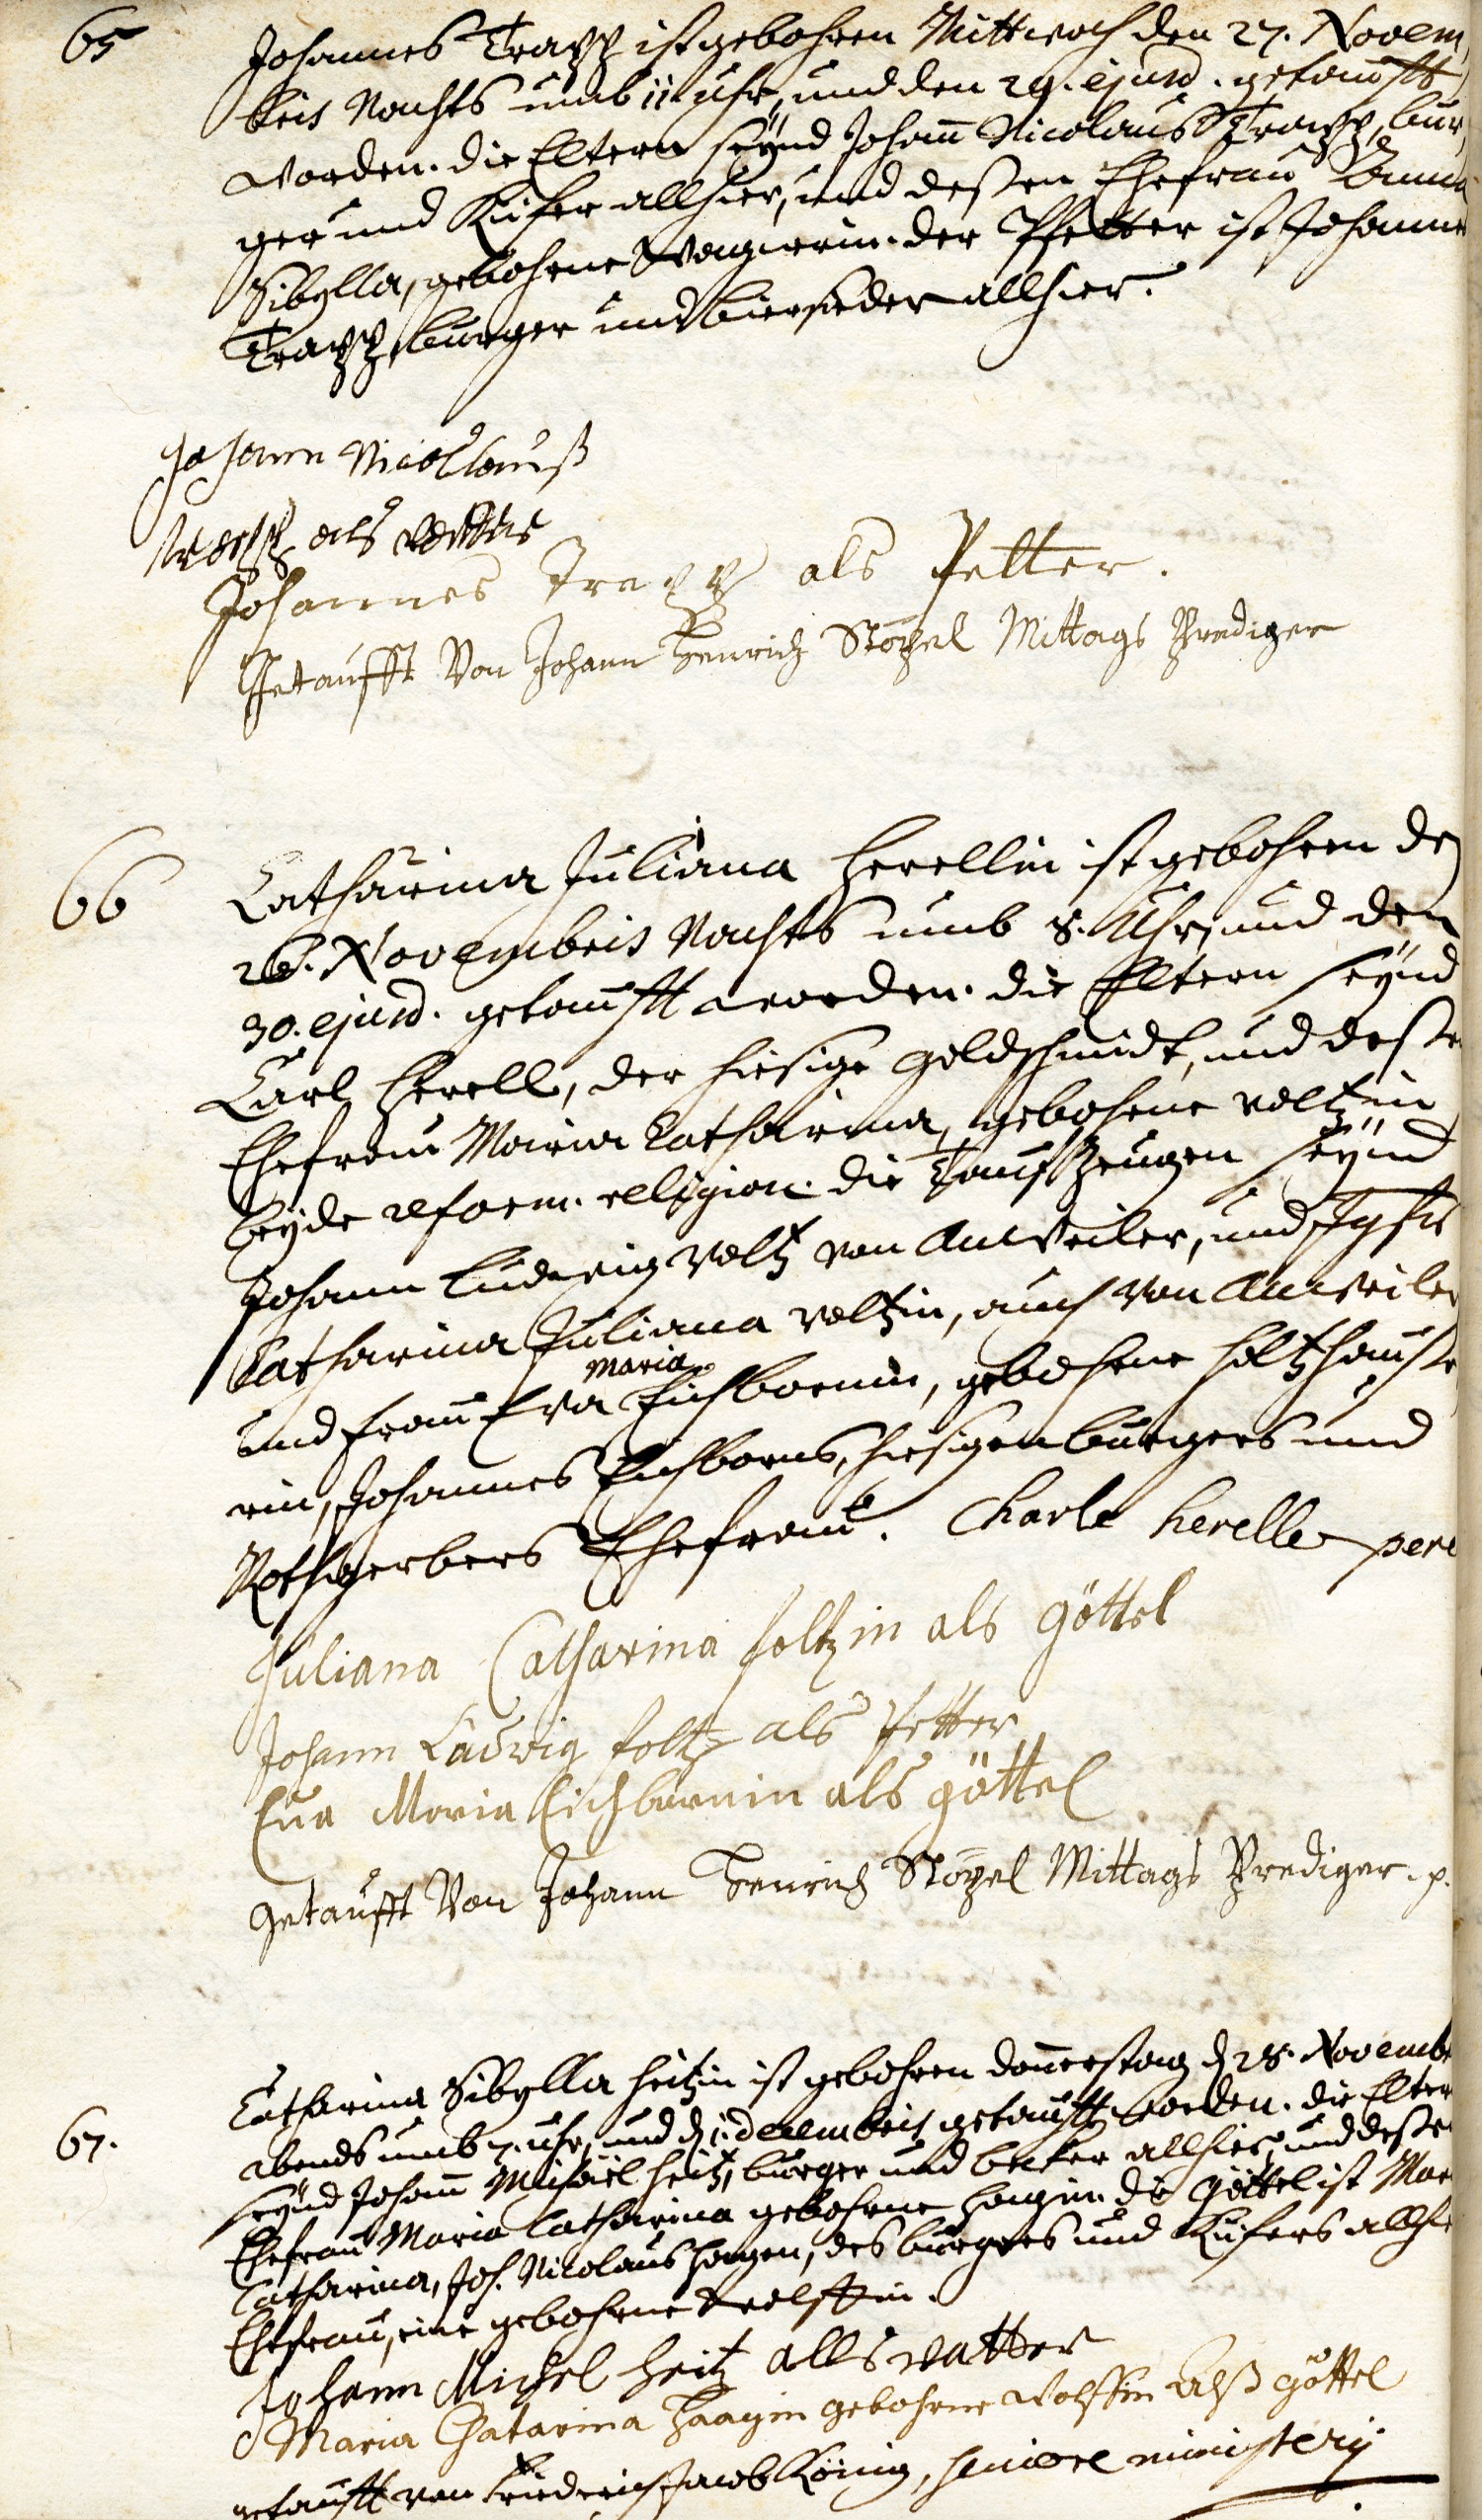 65 Johannes Trapp ist gebohren Mittwoch den 27. Novem
bris Nachts umb 11 uhr, und den 29. ejusd. getaufft
worden. die Eltern seynd Johann Nicolaus Trapp, bur,
ger und Kiefer allhier, und deßen Ehefrau Anna
Sibylla, gebohrne Wagnerin. der Pfetter ist Johannes
Trapp, burger und biersieder allhier.
Johann Nicolauß
als vatter
Johannes Trapp als Petter.
Getaufft Von Johann Henrich Stözel Mittags Prediger
66 Catharina Juliana Herellin ist gebohren de
26. Novembris Nachts umb 8. Uhr, und den
30. ejusd. getaufft worden. die Eltern seynd
Carl Herell, der hiesige Goldschmidt, und deße
Ehefrau Maria Catharina, gebohrne veltzin
beyde reform. religion. die Taufzeugen seynd
Johann Ludwig veltz von Anweiler, und Jgfr
Catharina Juliana veltzin, auch von Anweiler
maria
und frau Eva Eichbornin, gebohrne holtzhauße
rin, Johannes Eichborns, hiesigen burgers und
Rothgerbers Ehefrau. Charle herelle pere
Juliana Catharina foltzin als göttel
Johann Ludwig foltz als Petter
Eva Maria Eichbornin als göttel
getaufft Von Johann Henrich Stözel Mittags Prediger. p.
67. Catharina Sibylla heitzin ist gebohren donnerstag d 28. Novemb
abends umb 7. uhr, und d 1. decembris getaufft worden. die Elter
seynd Johann Michael heitz, burger und becker allhier, und deßen
Ehefrau Maria Catharina gebohrne haagin. die göttel ist Mar
Catharina, Joh. Nicolaus Haagen, des burgers und Kiefers allhie
Ehefrau, eine gebohrne wolffin.
Johann Michel heitz alls vatter
Maria Chatarina Haagin gebohrne wolffin alß göttel
getaufft von Friderich Jacob König, seniore ministerij